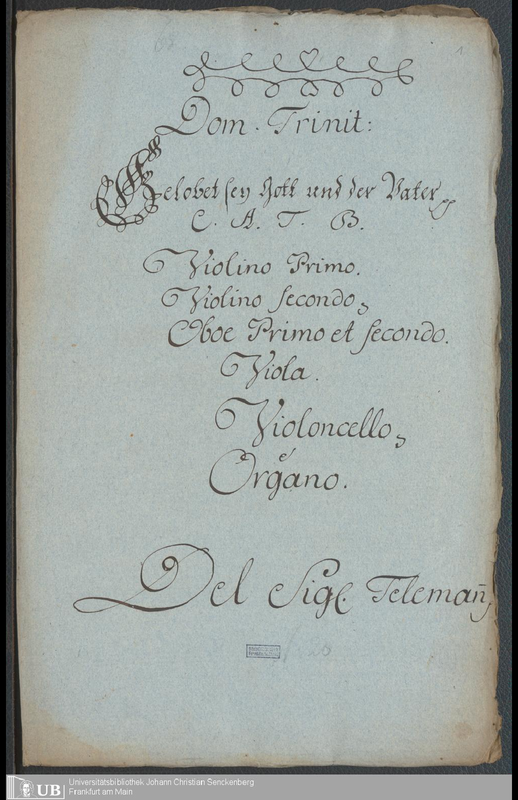 1
Dom. Trinit:
Gelobet sey Gott und der Vater
C. A. T. B.
Violino Primo.
Violino Secondo,
Oboe Primo et Secondo.
Viola.
Violoncello,
è
Organo.
Del Sigr Telemañ
UB
Universitätsbibliothek Johann Christian Senckenberg
Frankfurt am Main